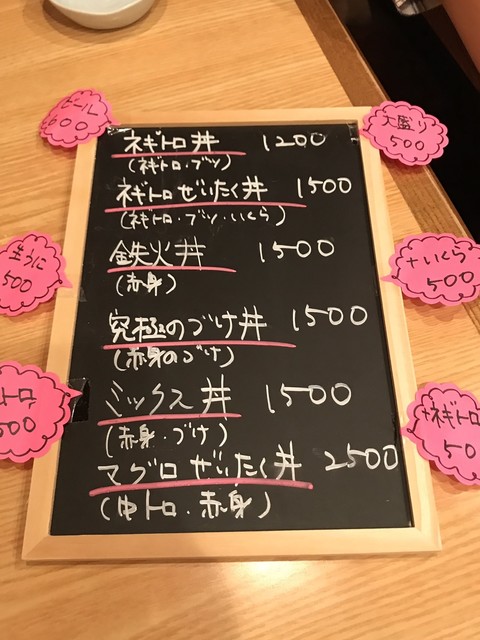 ビール
600
大盛り
500
ネギトロ丼 1200
(ネギトロ・ブツ)
ネギトロぜいたく丼 1500
(ネギトロ・ブツ・いくら)
生うに
500
+いくら
500
鉄火丼 1500
(赤身)
究極のづけ丼 1500
(赤身のづけ)
トロ
500
+ネギトロ
50
ミックス丼 1500
(赤身・づけ)
マグロぜいたく丼 2500
(中トロ・赤身)